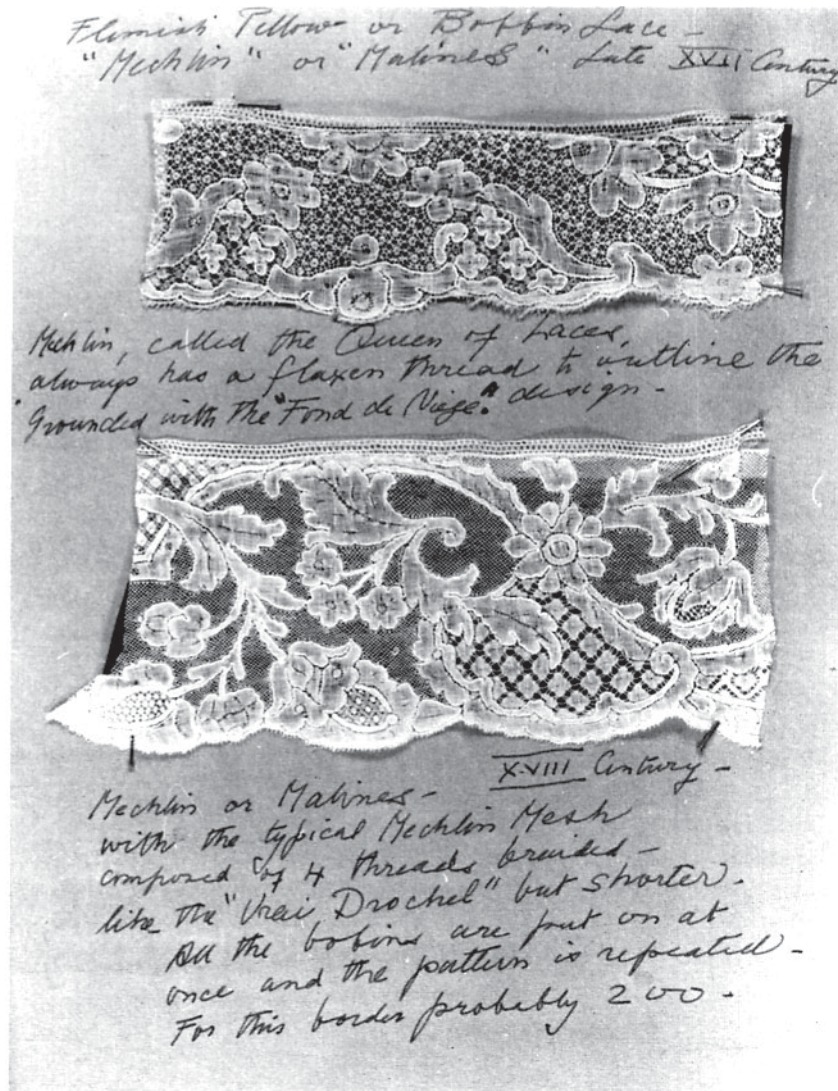 Flemish Pillow or Bobbin Lace -
"Mechlin" or "Malines" Late XVII Century
Mechlin, called the Queen of Laces,
always has a flaxen thread to outline the
Grounded with the "Fond de Niege." design -
XVIII Century -
Mechlin or Malines -
with the typical Mechlin Mesh
composed of 4 threads braided -
like the "Vrai Drochel" but shorter.
All the bobins are put on at
once and the pattern is repeated -
For this border probably 200 -